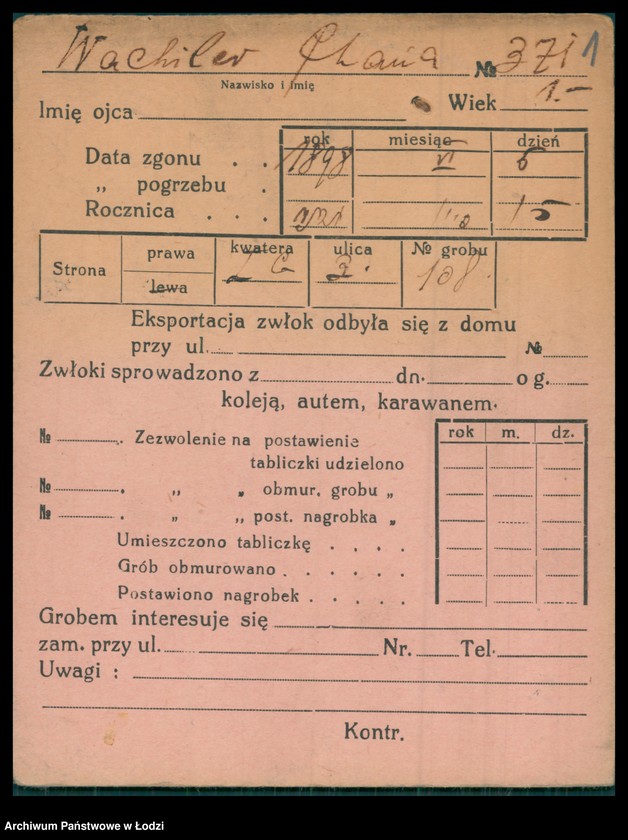 Wachiler Chana № 3711
Nazwisko i Imię
Imię ojca Wiek 1.-
rok miesiąc dzień
Data zgonu . . 1898 VI 5
„ pogrzebu .
Rocznica . . . 15
Strona prawa lewa kwatera L G ulica 2. № grobu 108
Eksportacja zwłok odbyła się z domu
przy ul. №
Zwłoki sprowadzono z dn. o g.
koleją, autem, karawanem.
№ . Zezwolenie na postawienie rok m. dz.
tabliczki udzielono
№ . „ „ obmur. grobu „
№ . „ „ post. nagrobka „
Umieszczono tabliczkę . . . .
Grób obmurowano . . . . .
Postawiono nagrobek . . . .
Grobem interesuje się
zam. przy ul. Nr. Tel.
Uwagi :
Kontr.
Archiwum Państwowe w Łodzi